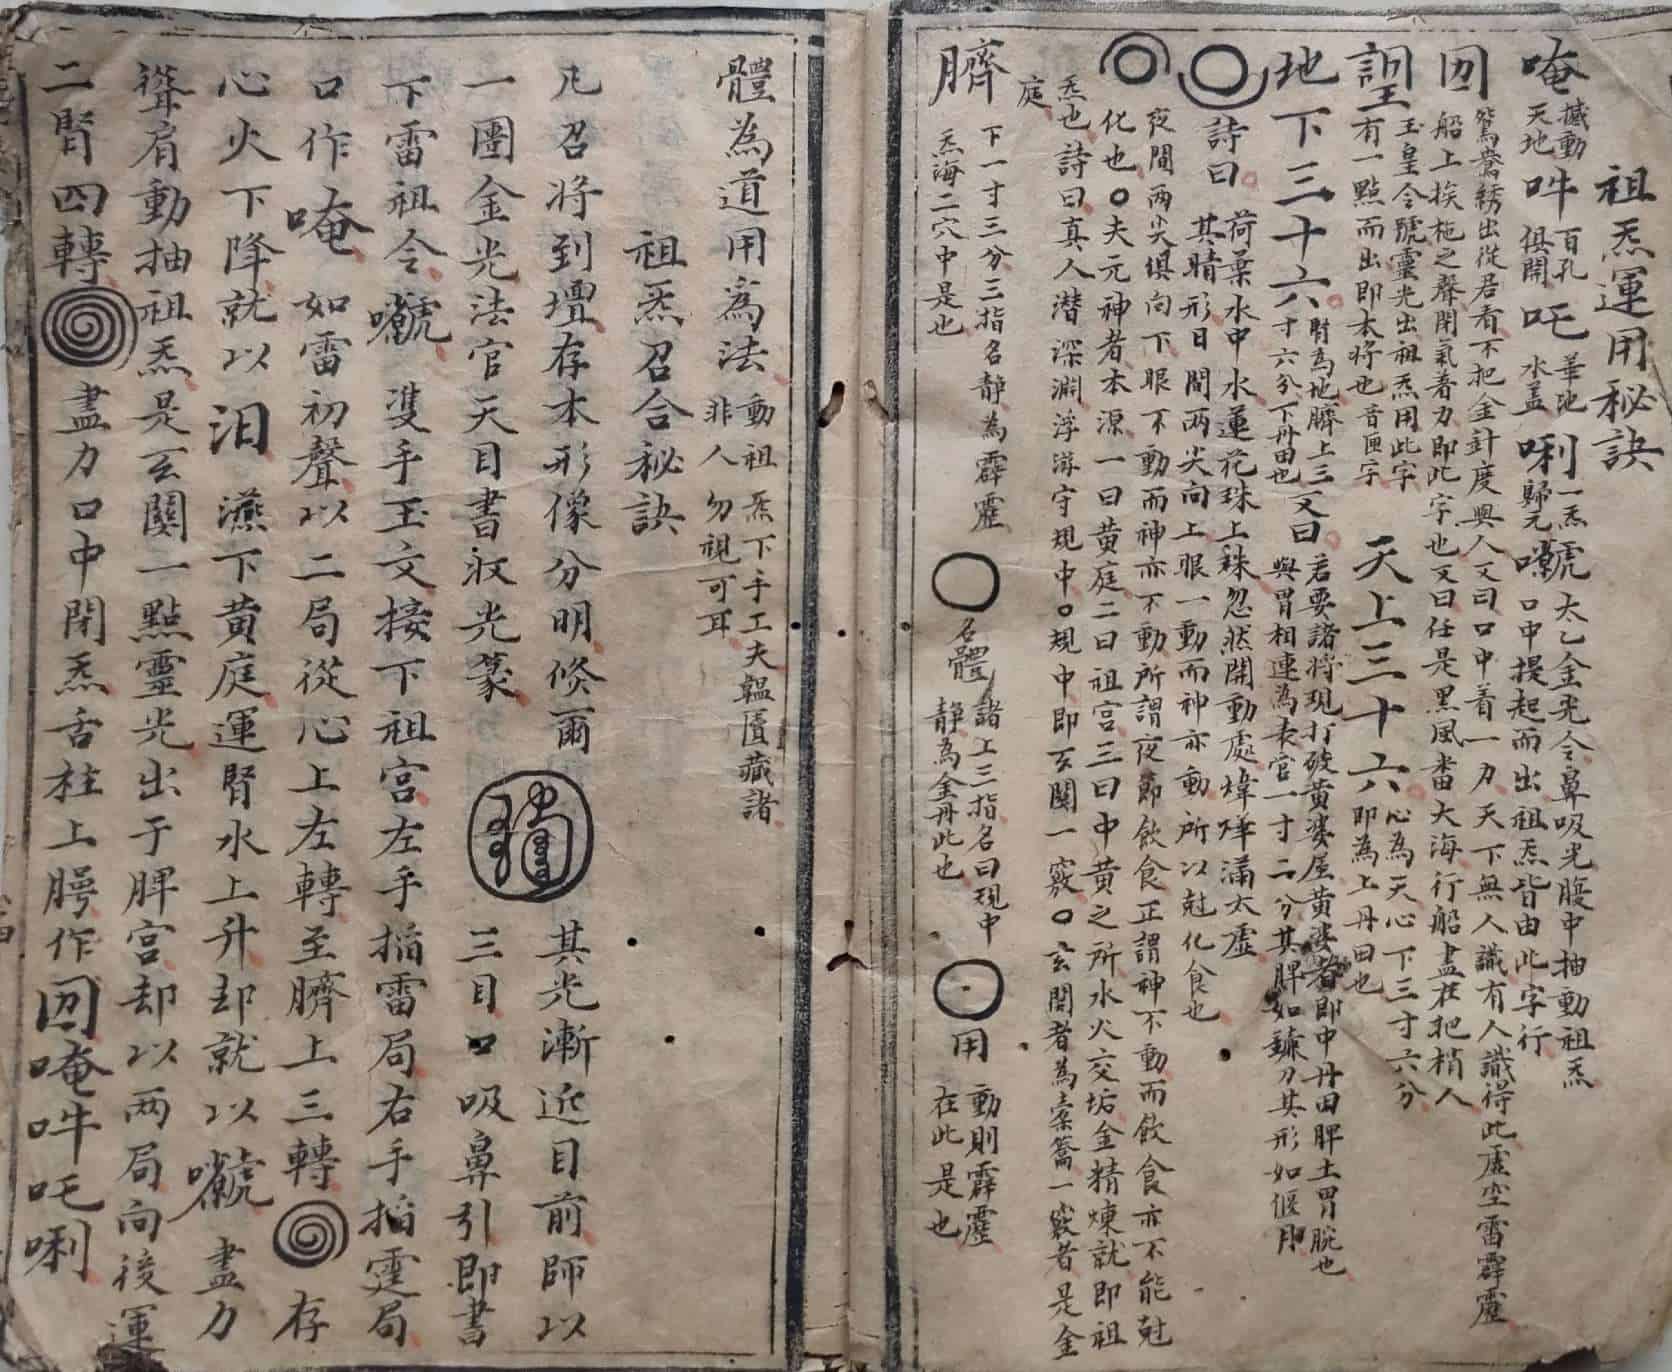 祖炁運用秘訣
唵 撼動天地 吽 百孔俱開 吒 華池水盖 唎 一炁歸元 㘓 太乙金光令鼻吸光腹中抽動祖炁
口中提起而出祖炁皆由此字行
鴛鴦綉出從君看不把金針度與人又曰口中着一力天下無人識有人識得此虛空雷霹靂
囙 船上挨柂之聲閉氣着力即此字也又曰任是黑風番大海行船盡在把梢人
玉皇令號靈光出祖炁用此字
有一點而出即本將也音匣字 天上三十六 心為天心下三寸六分
即為上丹田也
地下三十六 財為地臍上三
寸六分下丹田也 又曰 君要諸將現打破黃婆屋黃婆者即中丹田脾土胃脘也
與胃相連為表官一寸二分其脾如鐮刀其形如偃月
詩曰 荷葉水中水蓮花珠上珠忽然開動處煒燁滿太虛
其睛形日間两尖向上眼一動而神亦動所以尅化食也
夜間两尖俱向下眼不動而神亦不動所謂夜節飲食正謂神不動而飲食亦不能尅
化也夫元神者本源一曰黃庭二曰祖宫三曰中黃之所水火交垢金精煉就即祖
炁也詩曰真人潜深淵浮游守規中規中即玄關一竅玄關者為橐籥一竅者是金
庭
臍 下一寸三分三指名靜為霹靂
炁海二穴中是也 名體 諸上三指名曰規中
靜為金丹此也 用 動則霹靂
在此是也
體為道用為法 動祖炁下手工夫韞匱藏諸
非人勿視可耳
祖炁召合秘訣
凡召將到壇存本形像分明倏爾 其光漸近目前師以
一團金光法官天目書収光篆 三目口吸鼻引即書
下雷祖令㘓 䨇手玉文接下祖宫左手掐雷局右手掐霆局
口作唵 如雷初聲以二局從心上左轉至臍上三轉 存
心火下降就以汨 灙下黃庭運腎水上升却就以㘓 盡力
聳肩動抽祖炁是玄關一點靈光出于脾宫却以两局向後運
二腎四轉 盡力口中閉炁舌柱上腭作囙唵吽吒唎